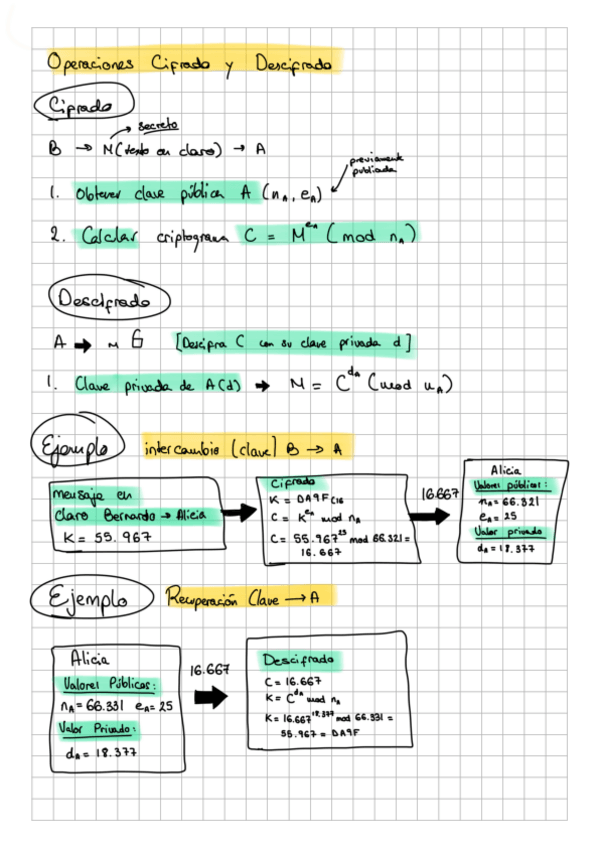 Operaciones Cifrado y Descifrado
Cifrado
secreto
B → M (texto en claro) → A
previamente
publicada
1. Obtener clave pública A (nA, eA)
2. Calclar criptograma C = M^eA (mod nA)
Descifrado
A → M [Descifra C con su clave privada d]
1. Clave privada de A(d) → M = C^dA (mod nA)
Ejemplo intercambio (clave) B → A
mensaje en
claro Bernardo → Alicia
K = 55.967
Cifrado
K = DA9F(16
C = K^eA mod nA
C = 55.967^25 mod 66.321 =
16.667
16.667
Alicia
Valores públicos:
nA = 66.321
eA = 25
Valor privado
dA = 18.377
Ejemplo Recuperación Clave → A
Alicia
Valores Públicos:
nA = 66.331 eA = 25
Valor Privado:
dA = 18.377
16.667
Descifrado
C = 16.667
K = C^dA mod nA
K = 16.667^18.377 mod 66.331 =
55.967 = DA9F